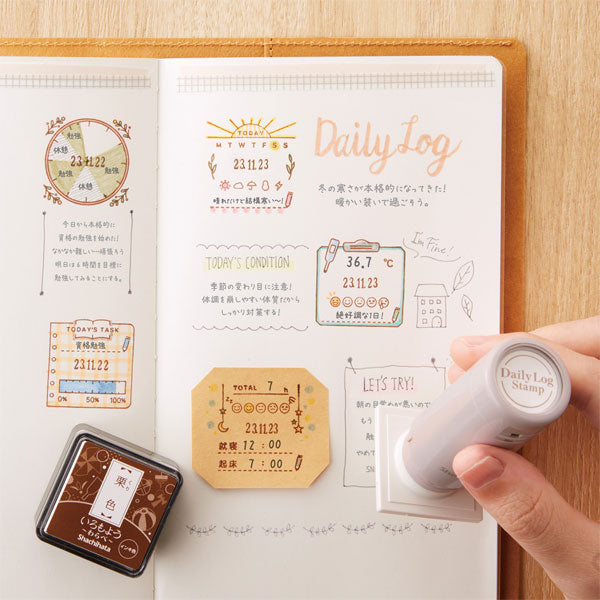 勉強
休憩
23.11.22
休憩
勉強
今日から本格的に
資格の勉強を始めた!
なかなか難しい…頑張ろう
明日は6時間を目標に
勉強してみることにする。
TODAY'S TASK
資格勉強
23.11.22
0% 50% 100%
栗色
くり
いろもよう
〜わらべ〜
Shachihata
インキ色
TODAY
M T W T F S S
23.11.23
晴れだけど結構寒い〜!
Daily Log
冬の寒さが本格的になってきた!
暖かい装いで過ごろう。
TODAY'S CONDITION
季節の変わり目に注意!
体調を崩しやすい体質だから
しっかり対策する!
36.7 ℃
23.11.23
絶好調な1日!
I'm Fine!
TOTAL 7 h
23.11.23
就寝 12:00
起床 7:00
LET'S TRY!
朝の目覚めが悪いので
もう
Daily Log
Stamp